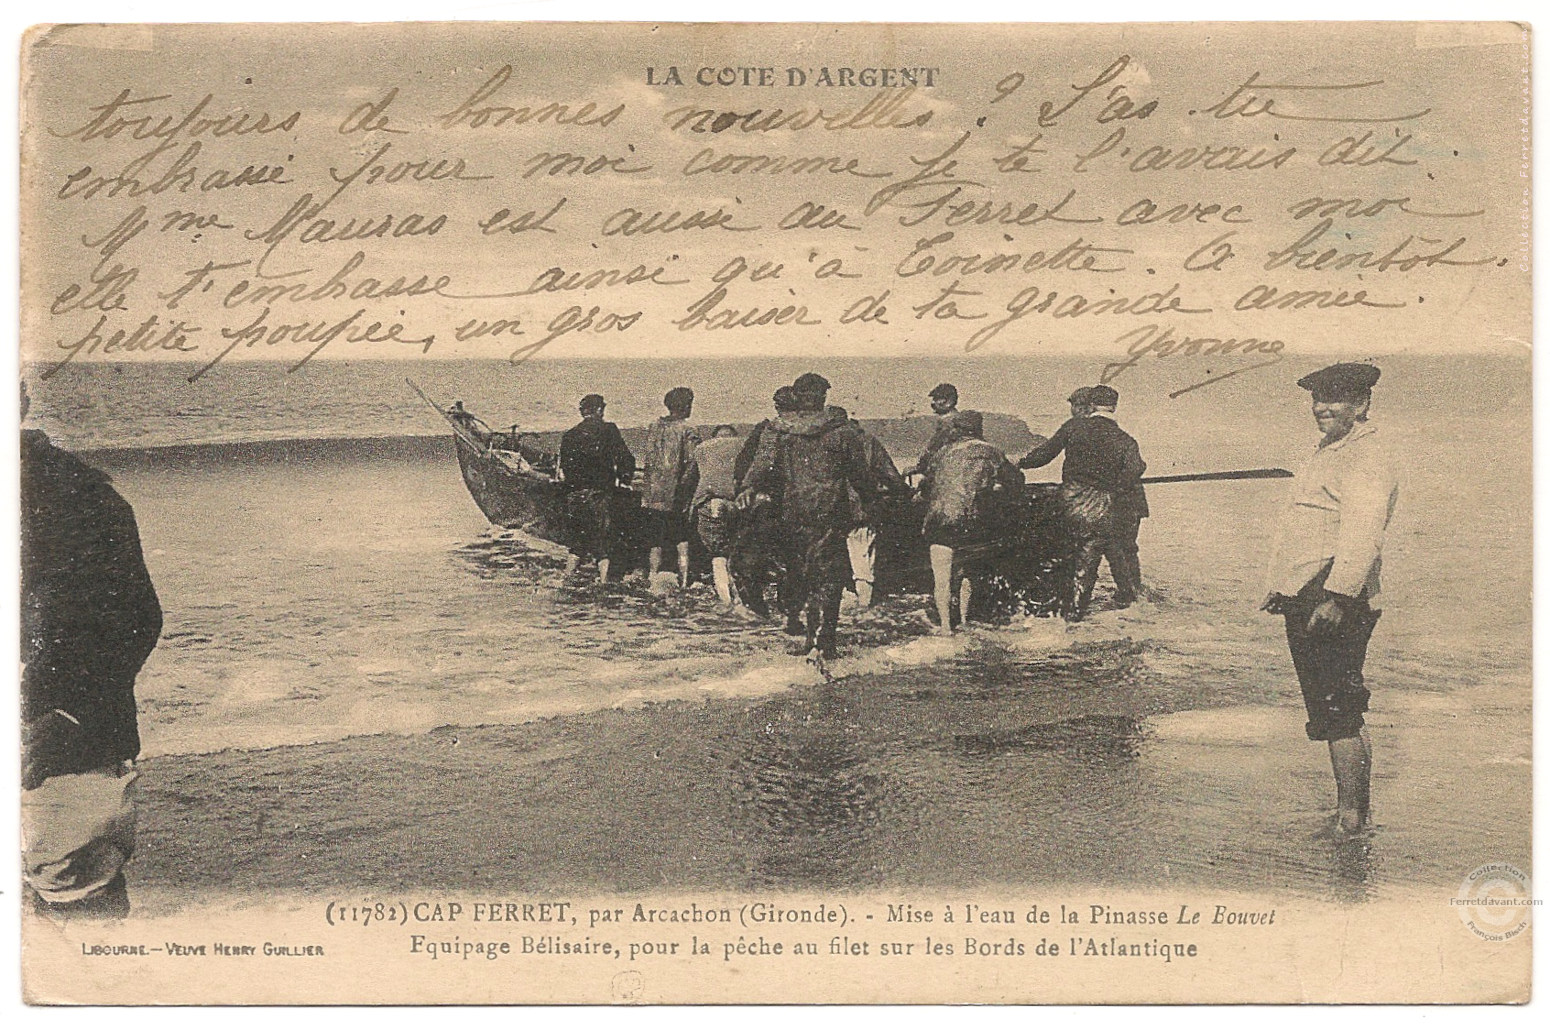 LA COTE D'ARGENT
toujours de bonnes nouvelles ? L'as tu
embrassé pour moi comme je te l'avais dit.
Mme Mauras est aussi au Ferret avec moi
elle t'embrasse ainsi qu'à Toinette. A bientôt
petite poupée, un gros baiser de ta grande amie.
Yvonne
(11782) CAP FERRET, par Arcachon (Gironde). - Mise à l'eau de la Pinasse Le Bouvet
Equipage Bélisaire, pour la pêche au filet sur les Bords de l'Atlantique
LIBOURNE.—VEUVE HENRY GUILLIER
Collection
Ferretdavant.com
François Bisch